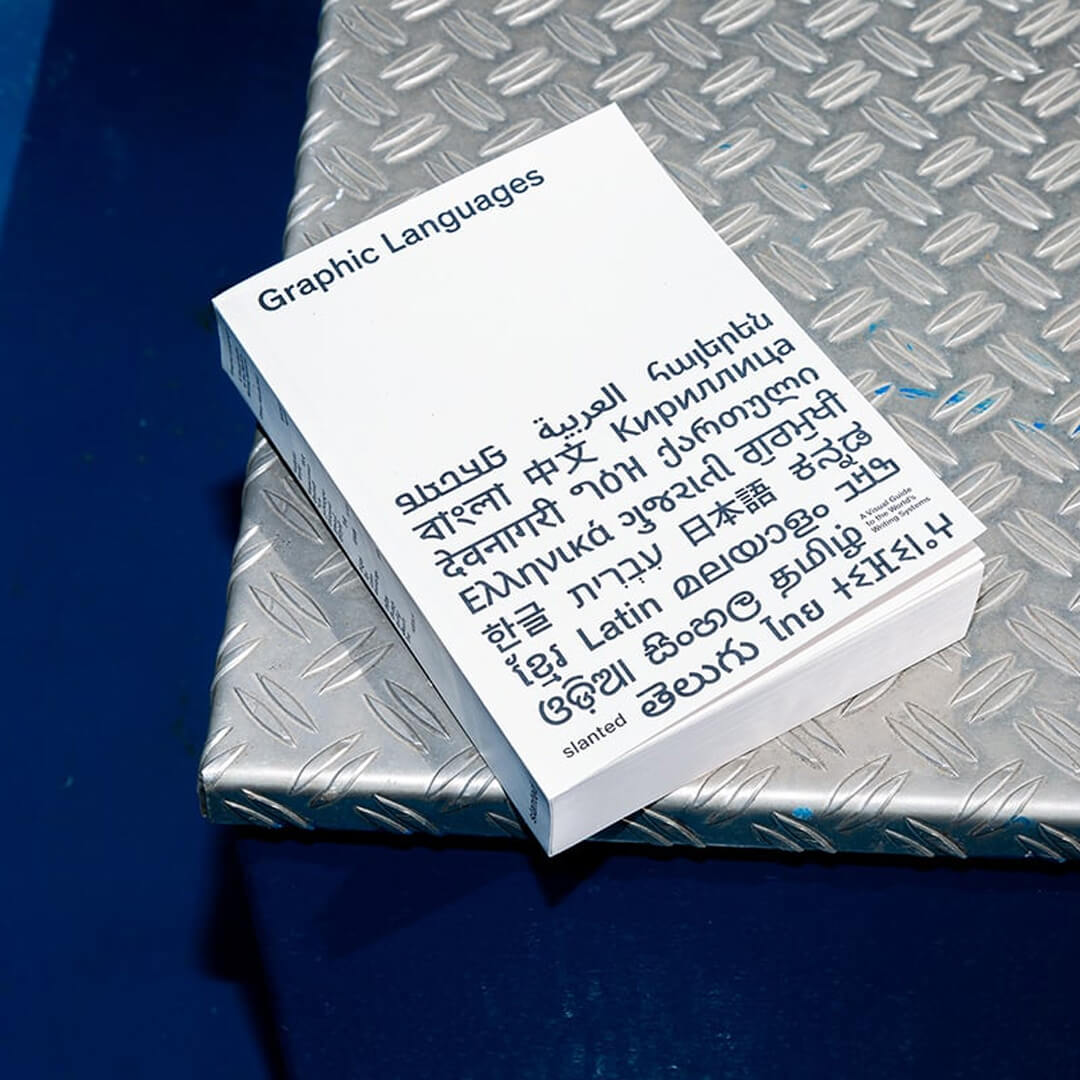 Graphic Languages
العربية հայերեն
বাংলা 中文 Кириллица
देवनागरी ግዕዝ ქართული
Ελληνικά ગુજરાતી ਗੁਰਮੁਖੀ
한글 עִבְרִית 日本語 ಕನ್ನಡ
ខ្មែរ Latin മലയാളം
ଓଡ଼ିଆ සිංහල தமிழ்
A Visual Guide
to the World's
Writing Systems
slanted
తెలుగు ไทย ⵜⵉⴼⵉⵏⴰⵖ
slanted